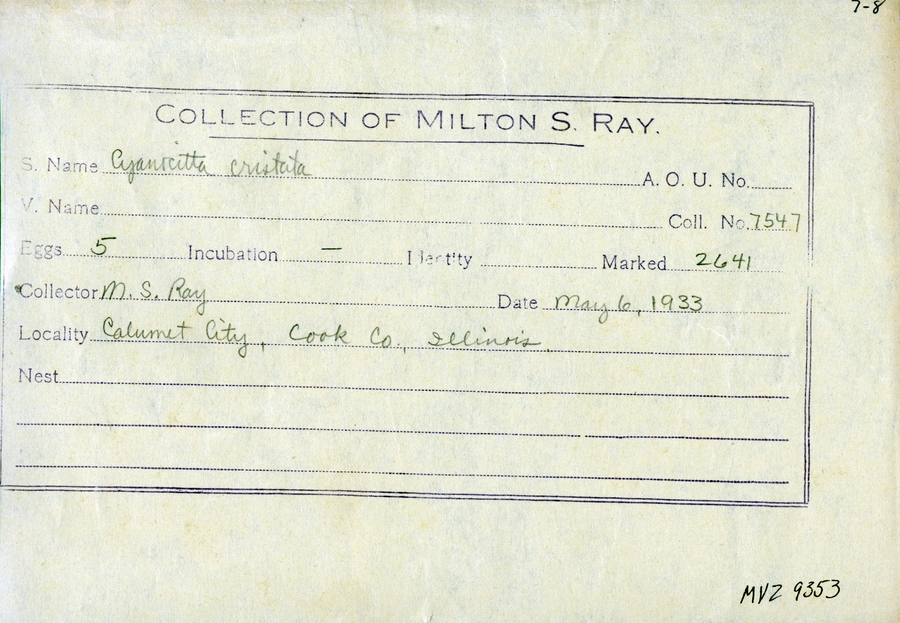 7-8
COLLECTION OF MILTON S. RAY.
S. Name Cyanocitta cristata A. O. U. No.
V. Name Coll. No. 7547
Eggs 5 Incubation — Identity Marked 2641
Collector M. S. Ray Date May 6, 1933
Locality Calumet City, Cook Co., Illinois.
Nest
MVZ 9353